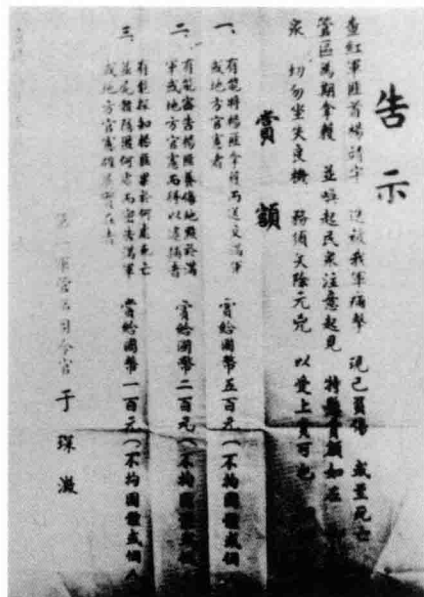 告示
查紅軍匪首楊靖宇 迭被我軍痛擊 現已負傷 或並死亡
管區為期拿獲 並喚起民衆注意起見 特懸賞額如左
衆 切勿坐失良機 務須矢除元兇 以受上賞可也
賞額
一、有能將楊匪拿獲而送交滿軍
或地方官憲者 賞給國幣五百元（不拘團體或個
二、有能密告楊匪養傷地點於滿
軍或地方官憲而得以逮捕者 賞給國幣二百元（不拘團體或個
三、有能探知楊匪業於何處死亡
並屍體隱匿何處而密告滿軍
或地方官憲確 者 賞給國幣一百元（不拘團體或個人
第二軍管區司令官 于琛澂